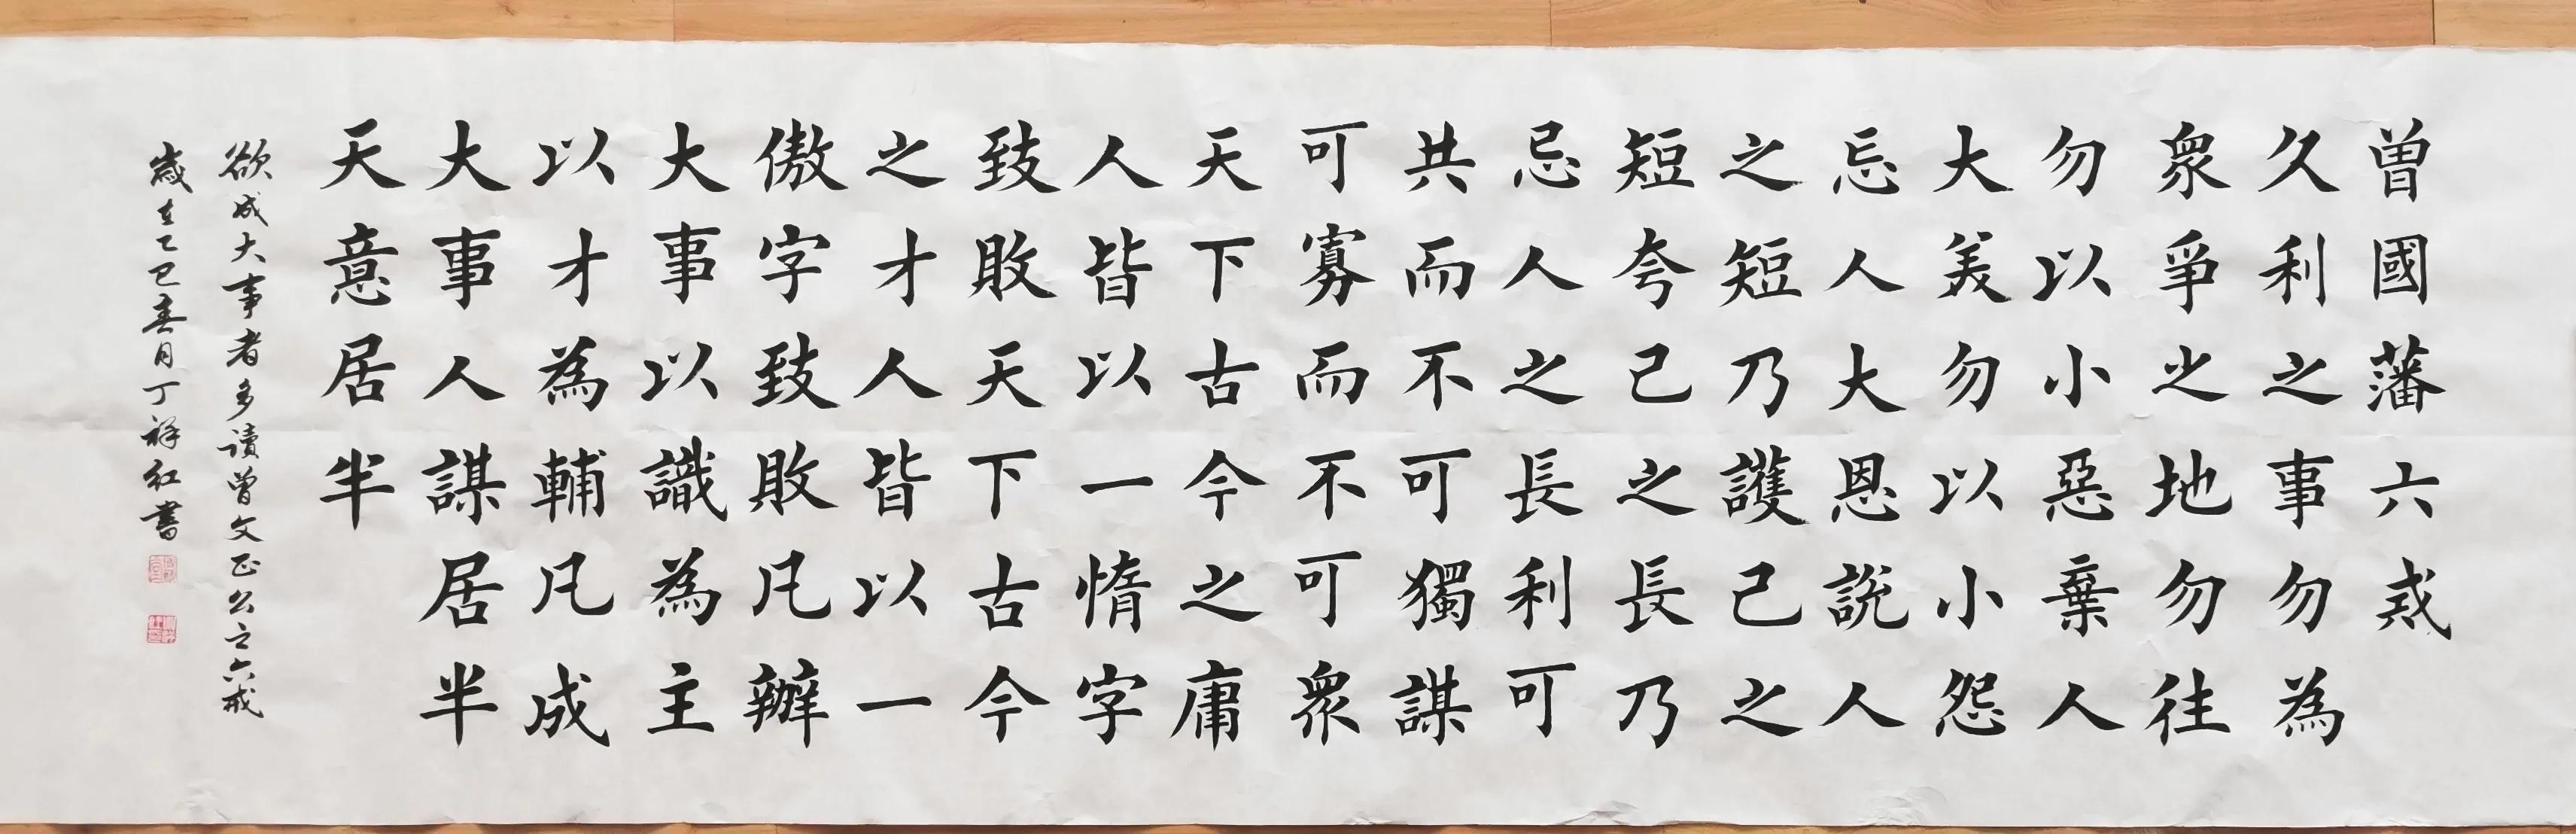 曾國藩六戒
久利之事勿為
衆爭之地勿往
勿以小惡棄人
大美勿以小怨
忘人大恩說人
之短乃護己之
短夸己之長乃
忌人之長利可
共而不可獨謀
可寡而不可衆
天下古今之庸
人皆以一惰字
致敗天下古今
之才人皆以一
傲字致敗凡辦
大事以識為主
以才為輔凡成
大事人謀居半
天意居半
欲成大事者多讀曾文正公之六戒
歲在乙巳春月丁祥紅書